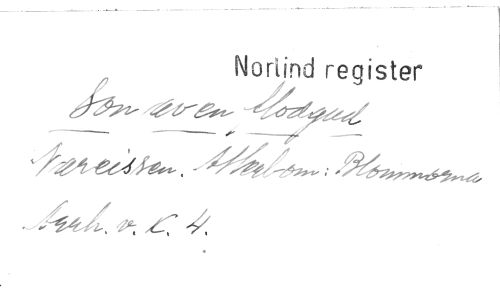 Norlind register
Son även Modgud
Narcissen. Atterbom: Blommorna
Ayrh. v. K. 4.